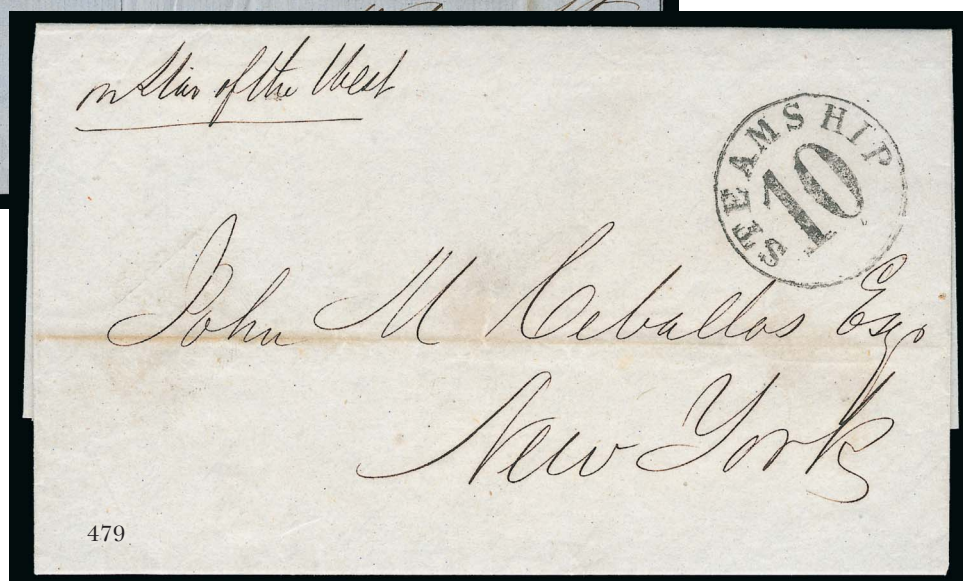 pr Star of the West
STEAMSHIP
10
John M Ceballos Esqr
New York
479